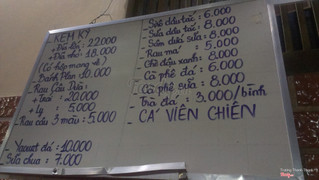 KEM KÝ
+ Đá lớn: 22.000
+ Đá nhỏ: 18.000
(Có hộp mang về)
- Bánh Plan 10.000
- Rau Câu Dừa
+ trái: 20.000
+ Ly : 5.000
- Rau câu 3 màu: 5.000
- Yaourt đá: 10.000
- Sữa chua : 7.000
- Siêu dâu tươi: 6.000
- Sữa dâu tươi: 8.000
- Sâm dứa sữa: 8.000
- Rau má : 5.000
- Chè đậu xanh: 8.000
- Cà phê đá : 6.000
- Cà phê sữa : 8.000
- Trà đá : 3.000/bình
CÁ VIÊN CHIÊN